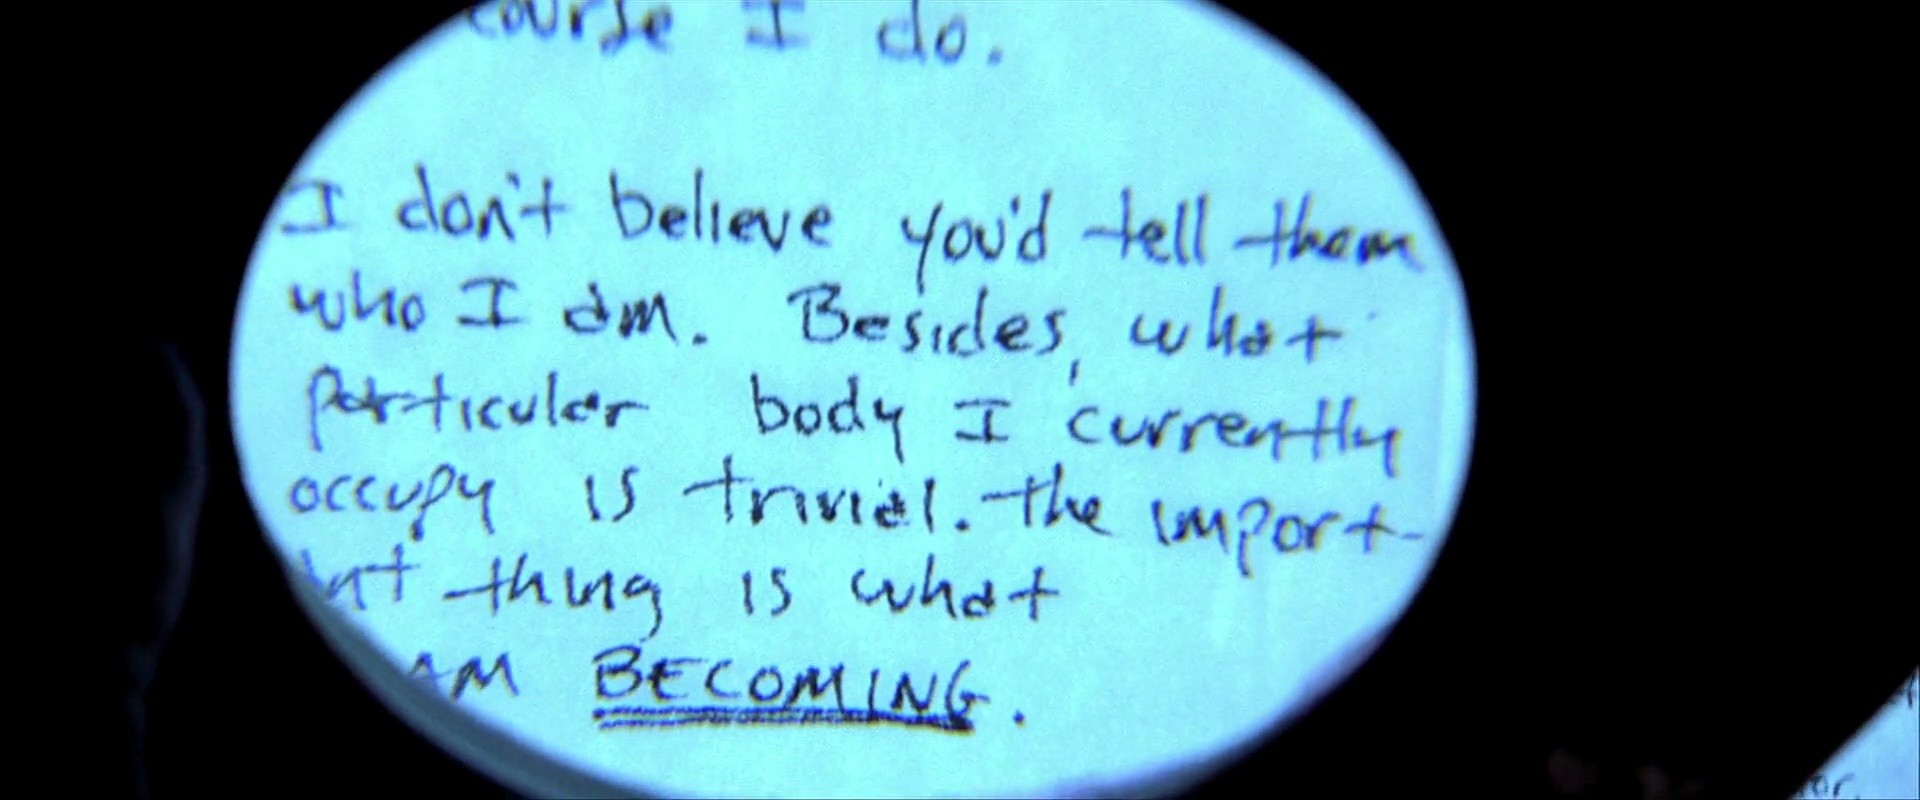 course I do.
I don't believe you'd tell them
who I am. Besides, what
particular body I currently
occupy is trivial. the import-
ant thing is what
AM BECOMING.
or.